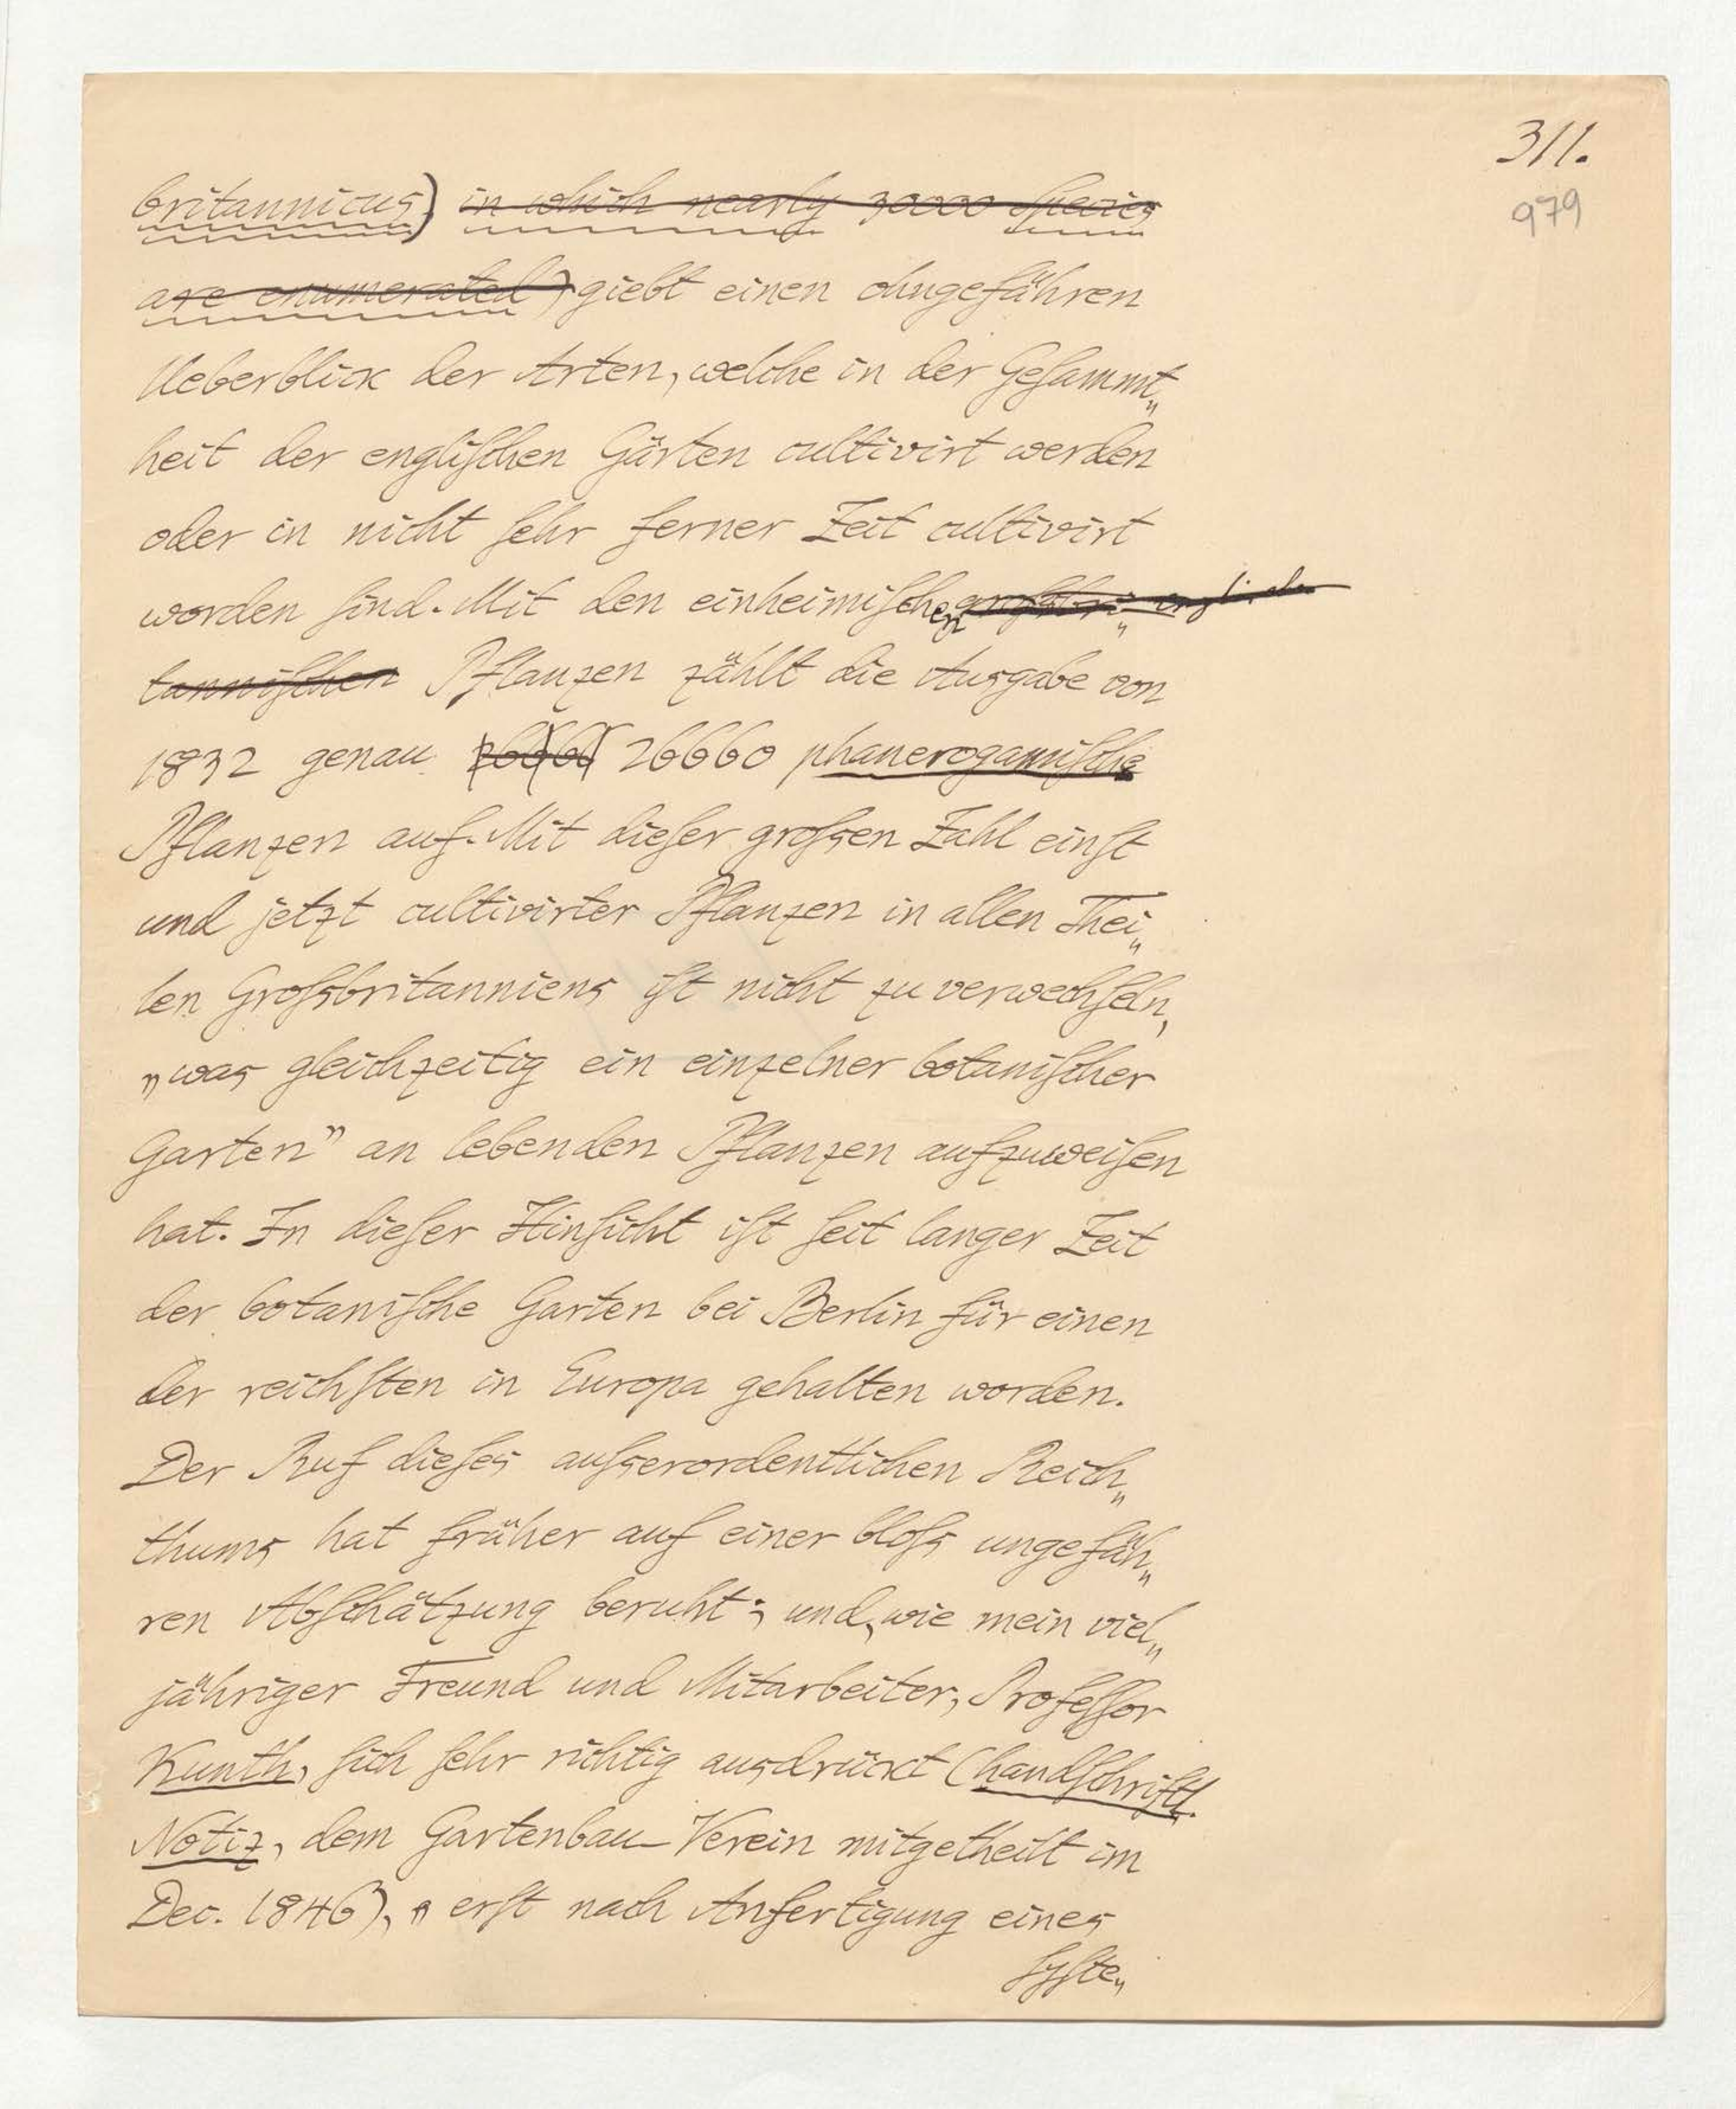 311.
979
britannicus) in which nearly 30000 Species
are enumerated) giebt einen ohngefähren
Ueberblick der Arten, welche in der Geſammt„
heit der engliſchen Gärten cultivirt werden
oder in nicht ſehr ferner Zeit cultivirt
worden ſind. Mit den einheimiſchen
tanniſchen Pflanzen zählt die Ausgabe von
1832 genau 26660 phanerogamiſche
Pflanzen auf. Mit dieſer groſsen Zahl einſt
und jetzt cultivirter Pflanzen in allen Thei„
len Groſsbritanniens iſt nicht zu verwechſeln,
„was gleichzeitig ein einzelner botaniſcher
Garten” an lebenden Pflanzen aufzuweiſen
hat. In dieſer Hinſicht iſt ſeit langer Zeit
der botaniſche Garten bei Berlin für einen
der reichſten in Europa gehalten worden.
Der Ruf dieſes auſserordentlichen Reich„
thums hat früher auf einer bloſs ungefäh„
ren Abſchätzung beruht; und, wie mein viel„
jähriger Freund und Mitarbeiter, Profeſſor
Kunth, ſich ſehr richtig ausdrückt (handſchriftl.
Notiz, dem Gartenbau-Verein mitgetheilt im
Dec. 1846), „ erſt nach Anfertigung eines
ſyſte„